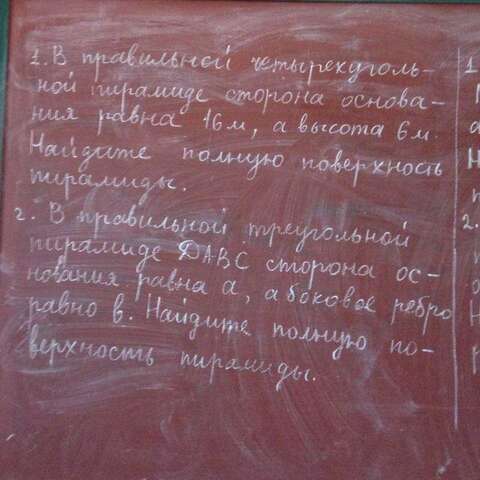 1. В правильной четырехуголь-
ной пирамиде сторона основа-
ния равна 16м, а высота 6м.
Найдите полную поверхность
пирамиды.
2. В правильной треугольной
пирамиде DABC сторона ос-
нования равна a, а боковое ребро
равно в. Найдите полную по-
верхность пирамиды.
1
а
Н
п
2.